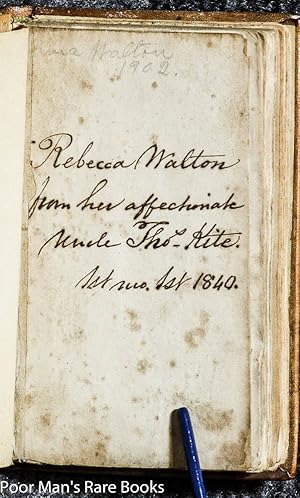 Walton
1902.
Rebecca Walton
from her affectionate
Uncle Tho.s Kite.
1st mo. 1st 1840.
Poor Man's Rare Books